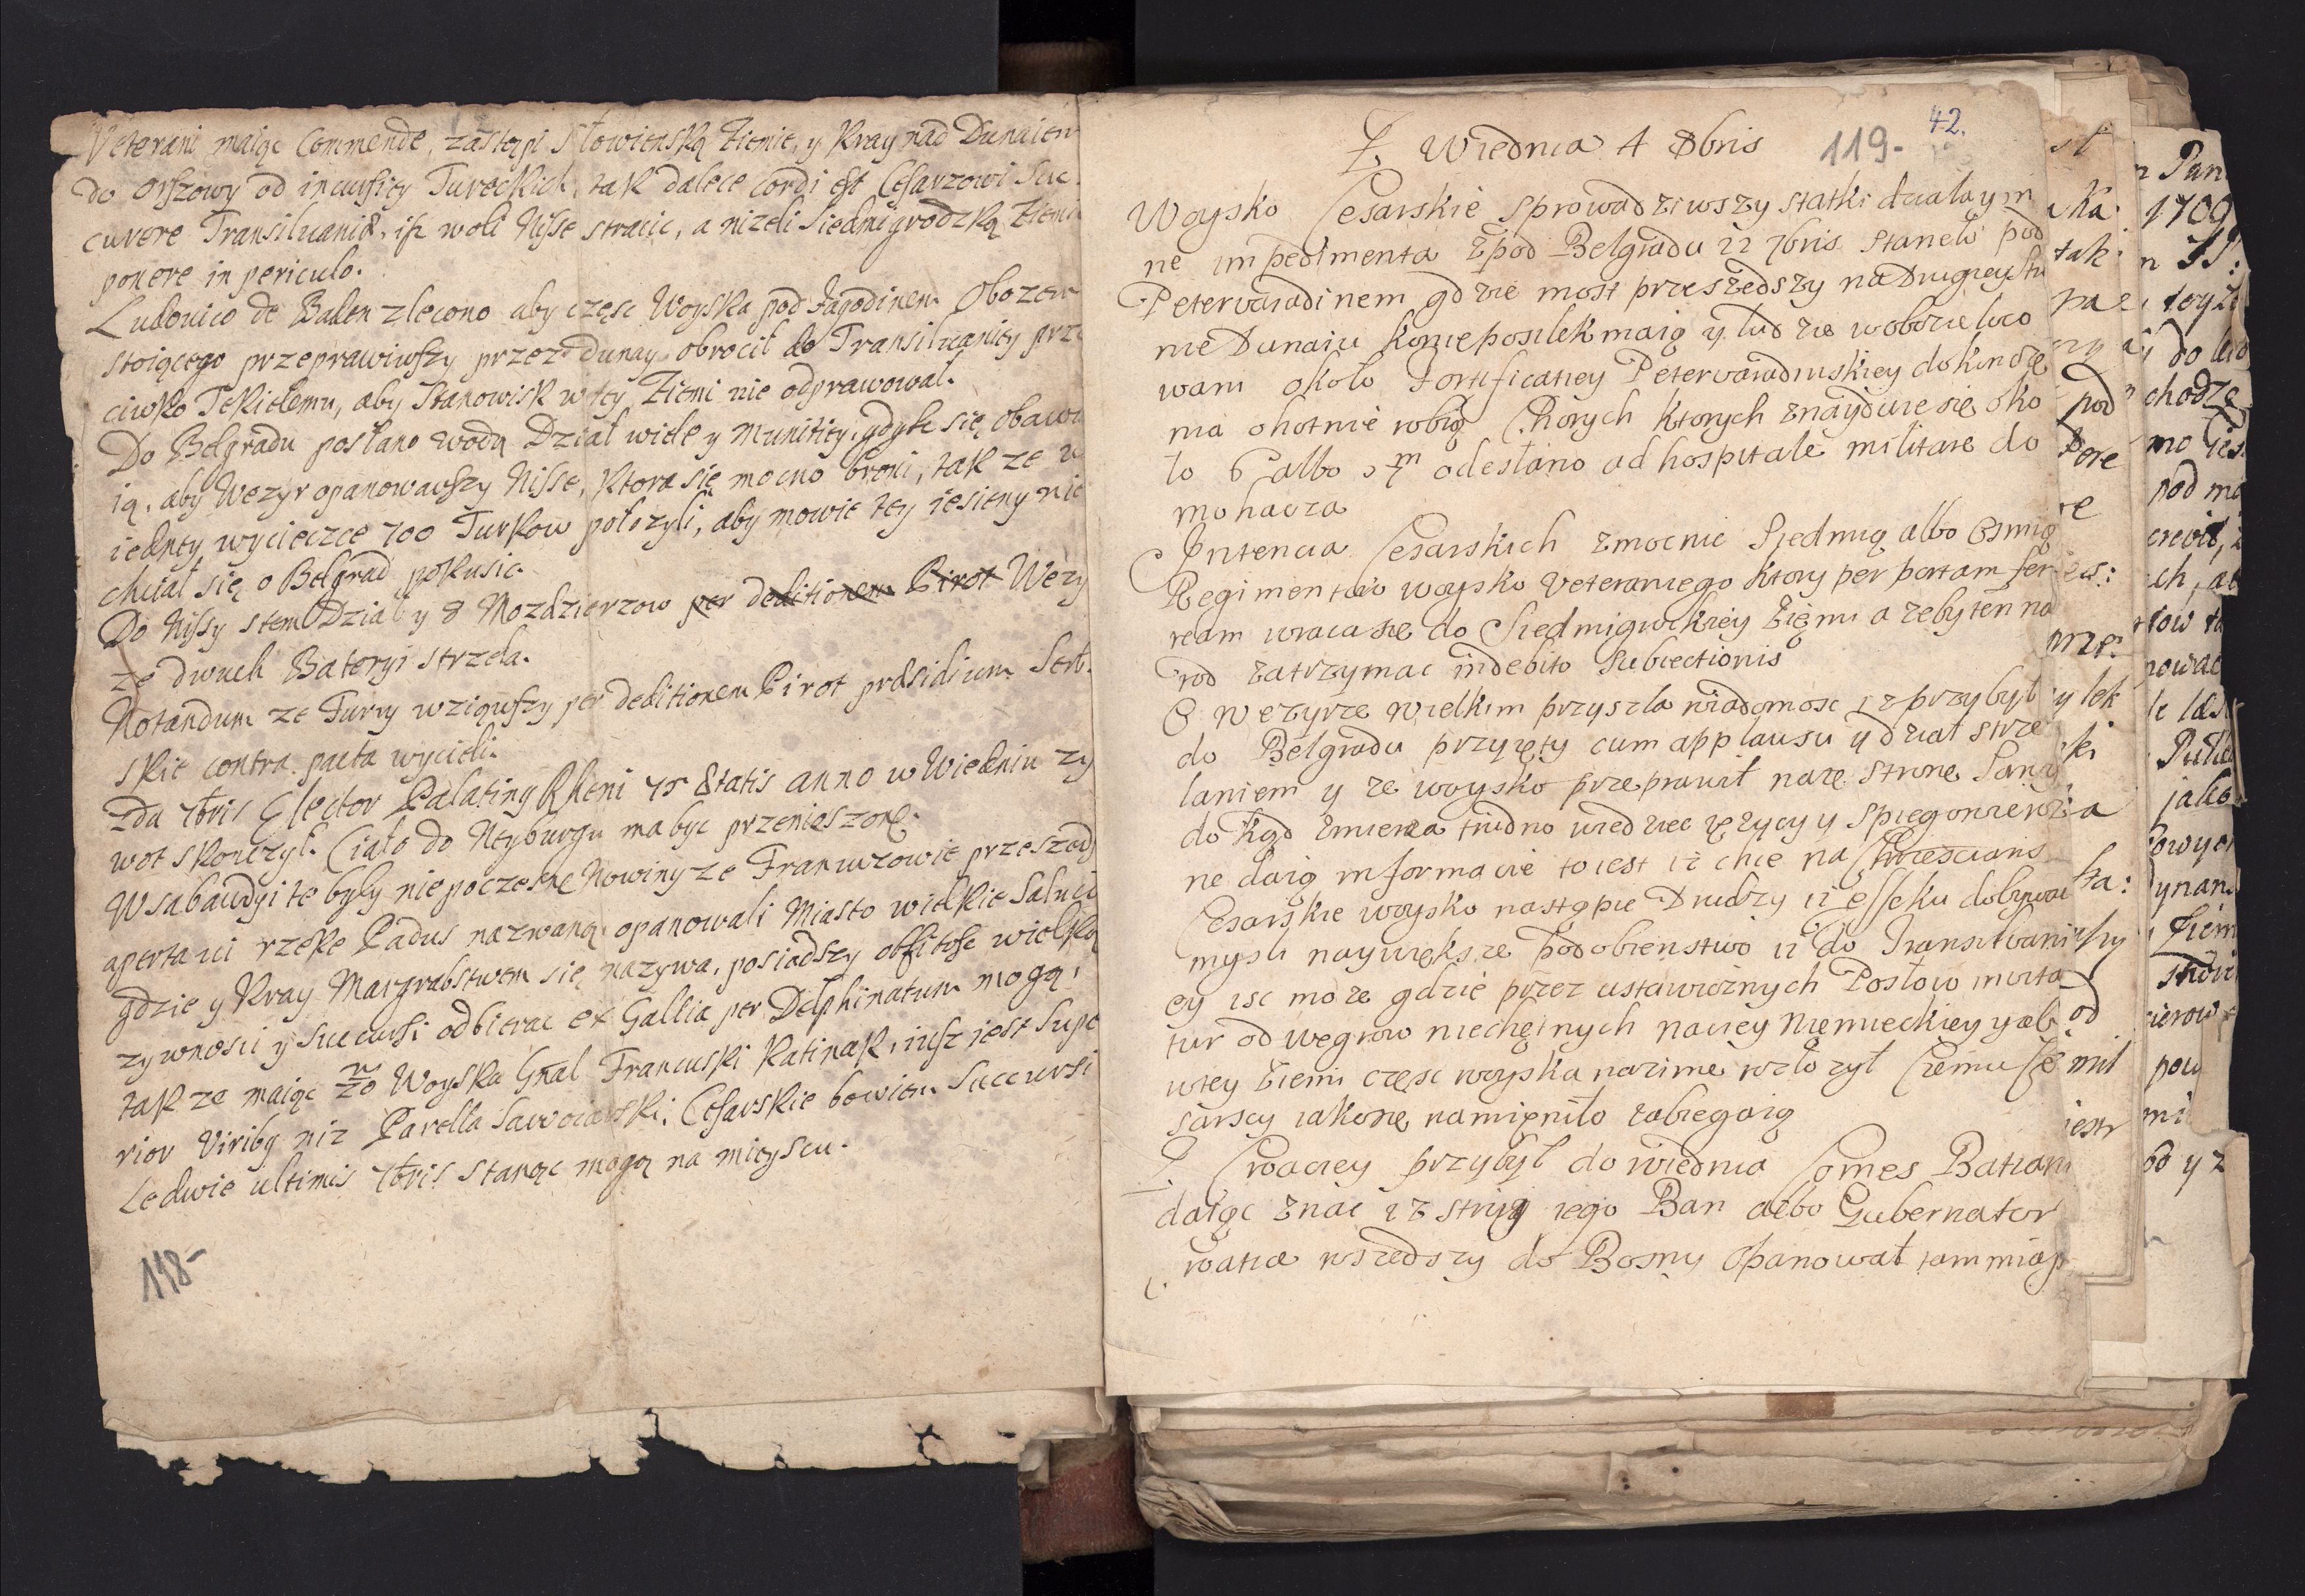 Veterani maiąc Commende, zastąpi Słowienską Ziemie, y Kray nad Dunaiem
do Orszowy od incursiey Tureckich, tak dalece cordi est Cesarzowi Suc
curere Transiluaniæ, isz woli Nisse stracic, a nizeli Siedmigrodzką Ziemi
ponere in periculo.
Ludovico de Baden zlecono aby częsc Woyska pod Jagodinem Obozem
stoiącego przeprawiwszy przez Dunay obrocił do Transiluaniey prze
ciwko Tekielemu, aby Stanowisk w tey Ziemi nie odprawował.
Do Belgradu posłano wodą Dział wiele y Munitiey, gdysz się obawia
ią, aby Wezyr opanowawszy Nisse, ktora się mocno broni, tak ze w
iedney wycieczce 700 Turkow połozyli, aby mowie tey iesieny nie
chciał się o Belgrad pokusic.
Do Nissy stem Dział y 8 Mozdzierzow per deditionem Pirot Wezy
ze dwuch Bateryi strzela.
Notandum ze Turcy wziąwszy per deditionem Pirot præsidium Serb
skie contra pacta wycieli.
2da 7bris Elector Palating Rheni 75 Etatis anno w Wiedniu zy
wot skonczył. Ciało do Neyburgu ma byc przenieszone.
W Sabaudyi te były niepoczesne Nowiny ze Francuzowie przeszedszy
aperta vi rzeke Padus nazwaną opanowali Miasto wielkie Saluci
gdzie y Kray Margrabstwem się nazywa, posiadszy obfitosc wielką
zywnosci y Succursi odbierac ex Gallia per Delphinatum mogą,
tak ze maiąc 20 m Woyska Gnał Francuski Katinak, iusz jest Supe
rior Viribg niz Parella Sawoiarski, Cesarskie bowiem Succursi
Ledwie ultimis 7bris stanąc mogą na mieyscu.
118-
42.
119-
Z Wiednia 4 8bris
Woysko Cesarskie sprowadziwszy statki działa y in
ne impedimenta zpod Belgradu 22 7bris staneło pod
Petervaradinem gdzie most przeszedszy na drugiey stro
nie Dunaiu konie posilek maią y ludzie w obozie luzo
wani około Fortificatiey Petervaradinskiey dokoncze
nia ohotnie robią Chorych ktorych znayduie się oko
ło 6 albo 7 m odesłano ad hospitale militare do
mohacza
Intencia Cesarskich zmocnic Siedmią albo Osmią
Regimentow woysko Veteraniego ktory per portam fer
ream wraca się do Siedmigrockiey Ziemi a zeby ten na
rod zatrzymac in debito subiectionis
O Wezyrze wielkim przyszła wiadomosc iz przybył
do Belgradu przyięty cum applausu y dział strze
laniem y ze woysko przeprawił na te strone Sawy
dokąd zmierza trudno wiedziec ięzycy y spiegowie roz
ne daią informacie to iest iz chce na Chrzescians
Cesarskie woysko nastąpic Drudzy iz Esseku dobywac
mysli naywieksze podobienstwo iz do Transilvani
ey isc moze gdzie przez ustawicznych Posłow invita
tur od węgrow niechętnych naciey Niemieckiey y aby
w tey Ziemi częsc woyska na zime rozłozył Czemu Ce
sarscy iako się namieniło zabiegaią
Z Croaciey przybył do Wiednia Comes Batiani
daiąc znac iz stryi iego Ban albo Gubernator
Croatiæ wszedszy do Bosny Opanował tam miast